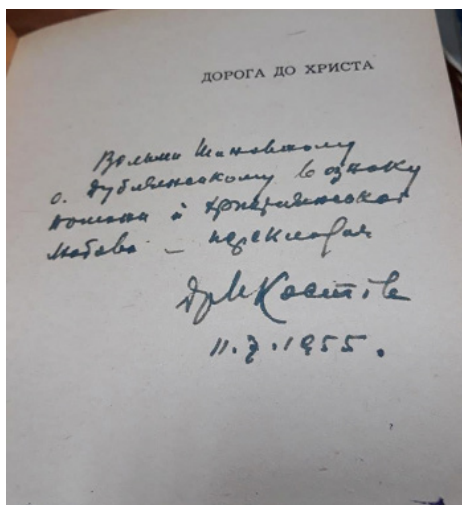 ДОРОГА ДО ХРИСТА
Вельми Шановному
о. Дублянському в ознаку
пошани й християнської
любови — перекладач
Др М Костів
11.7.1955.